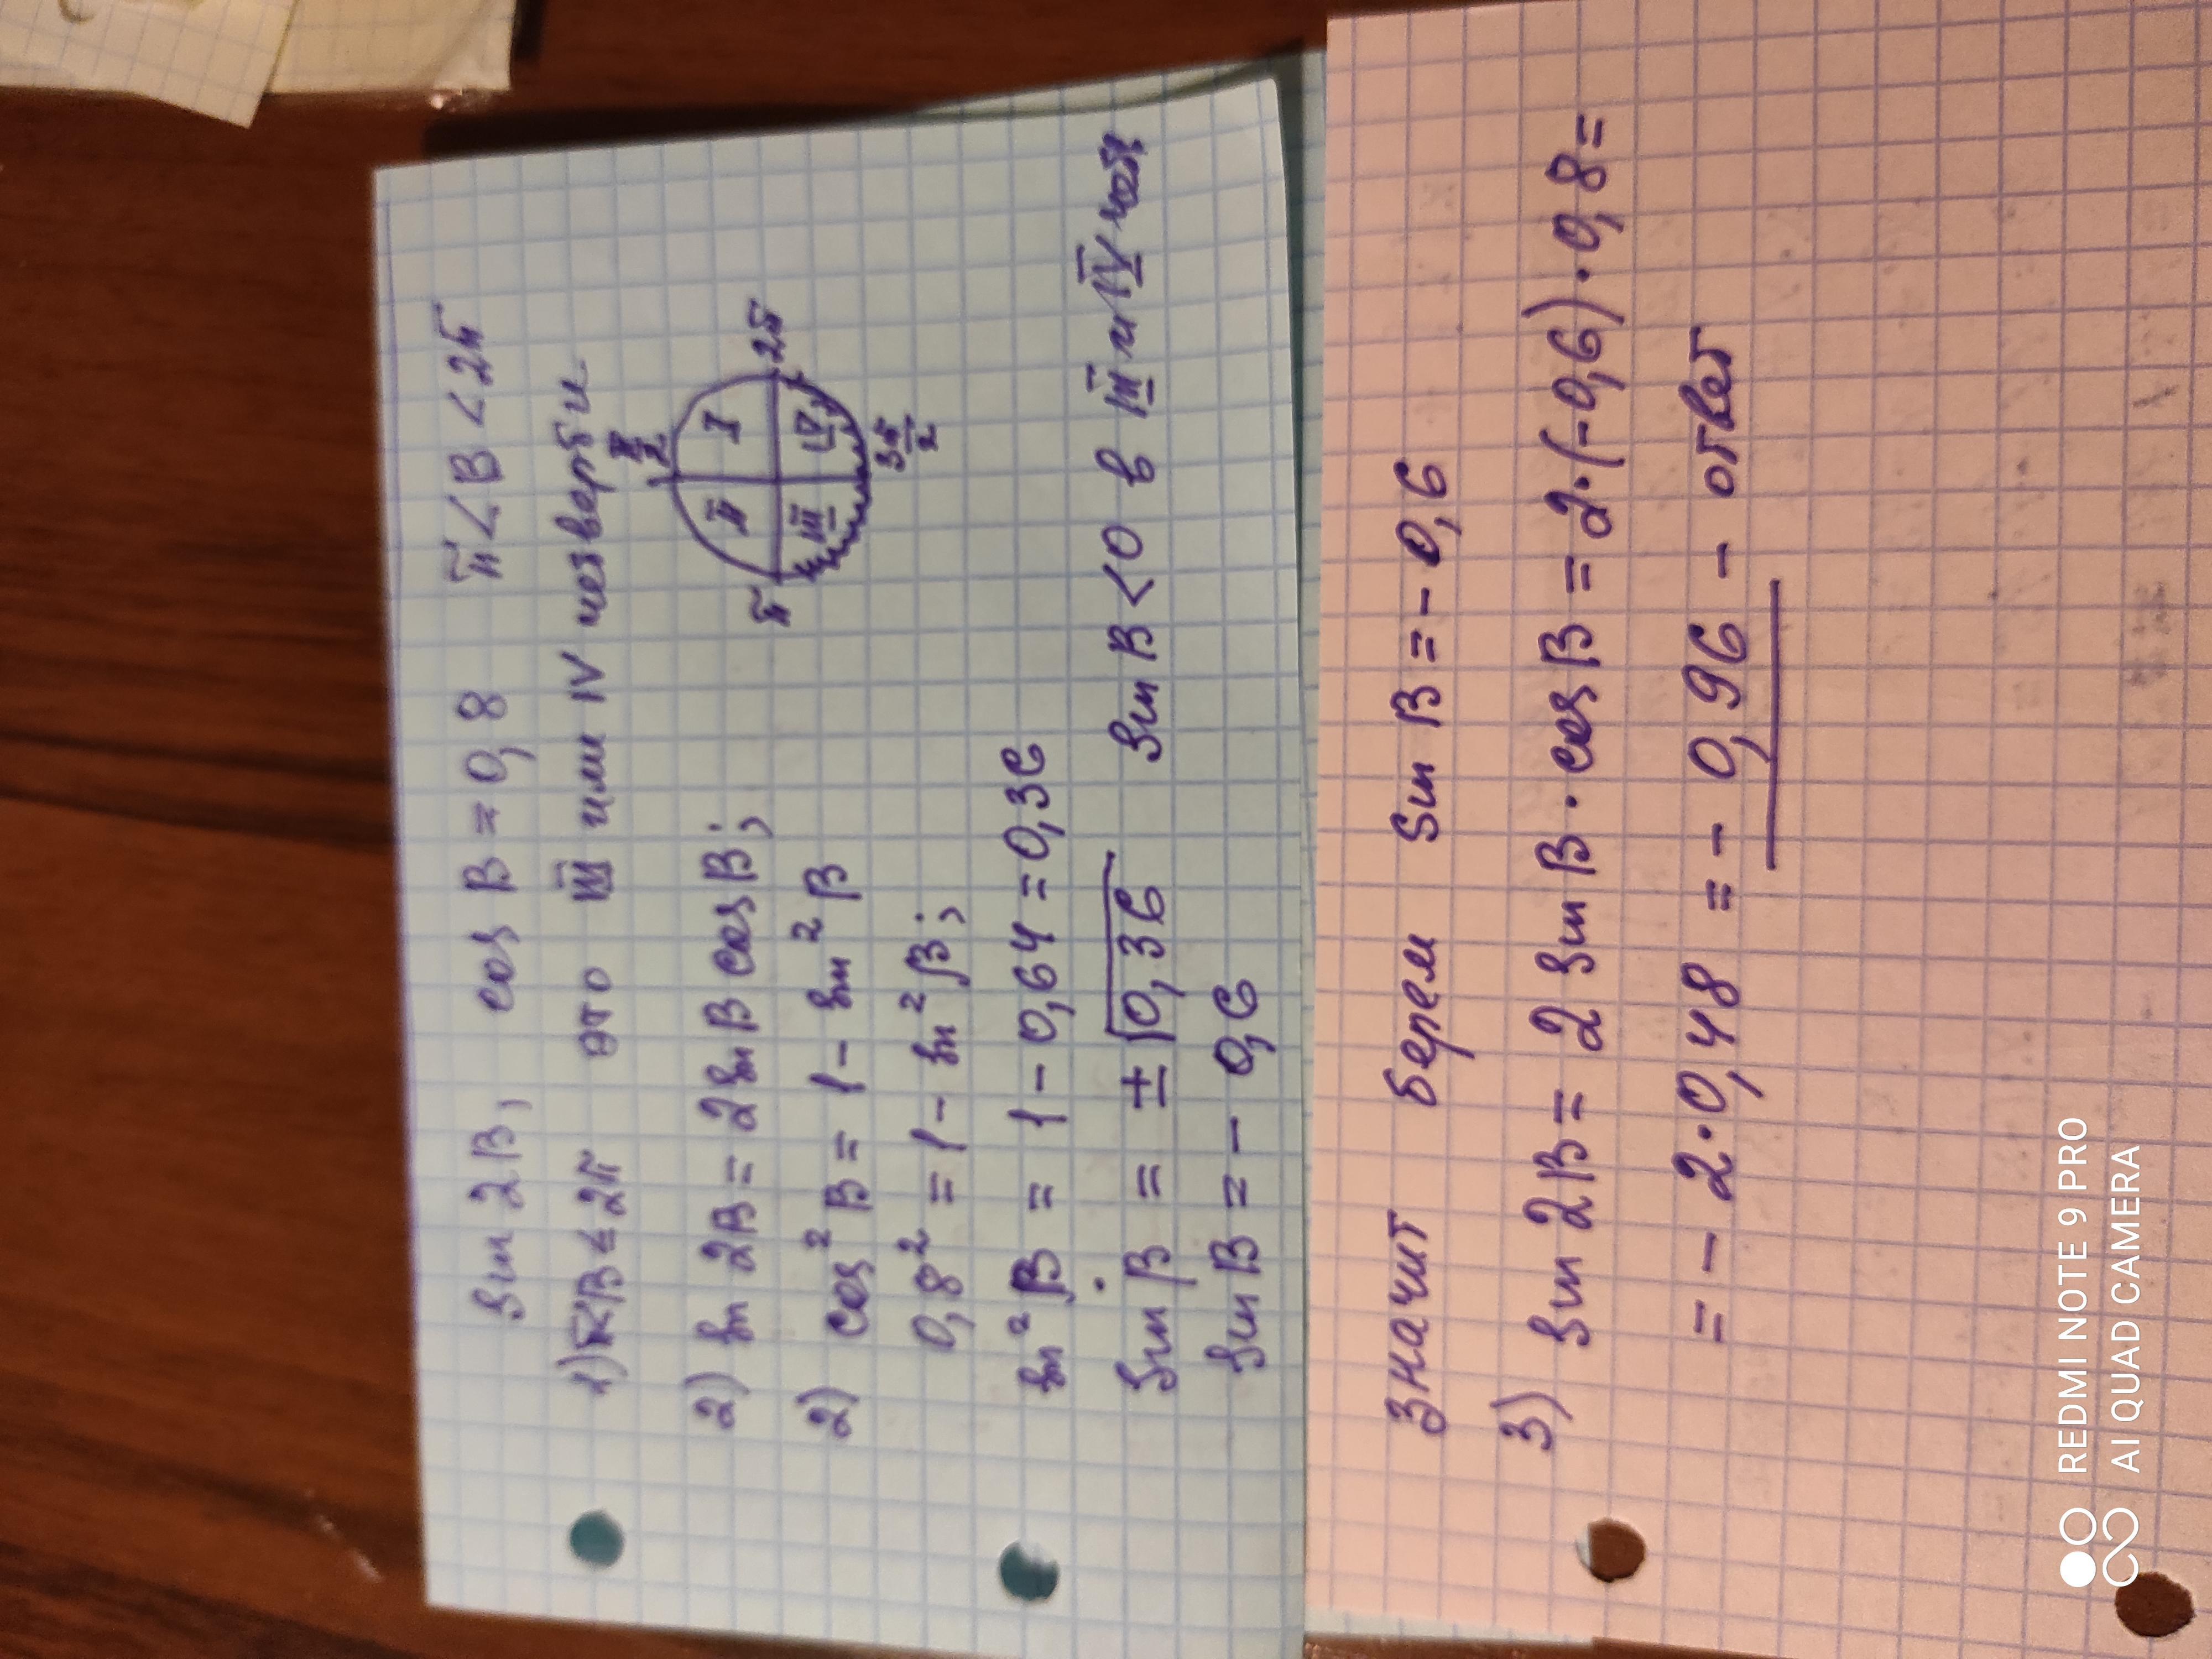 sin 2β, cos β = 0,8 π < β < 2π
1) π<β≤2π это III или IV четверти
π/2
I
II
III
IV
π
2π
3π/2
2) sin 2β = 2 sin β cos β;
2) cos² β = 1 - sin² β
0,8² = 1 - sin² β;
sin² β = 1 - 0,64 = 0,36
sin β = ± √0,36 sin β < 0 в III и IV
sin β = - 0,6
значит берем sin β = - 0,6
3) sin 2β = 2 sin β · cos β = 2·(-0,6)·0,8 =
= - 2·0,48 = - 0,96 - ответ
REDMI NOTE 9 PRO
AI QUAD CAMERA